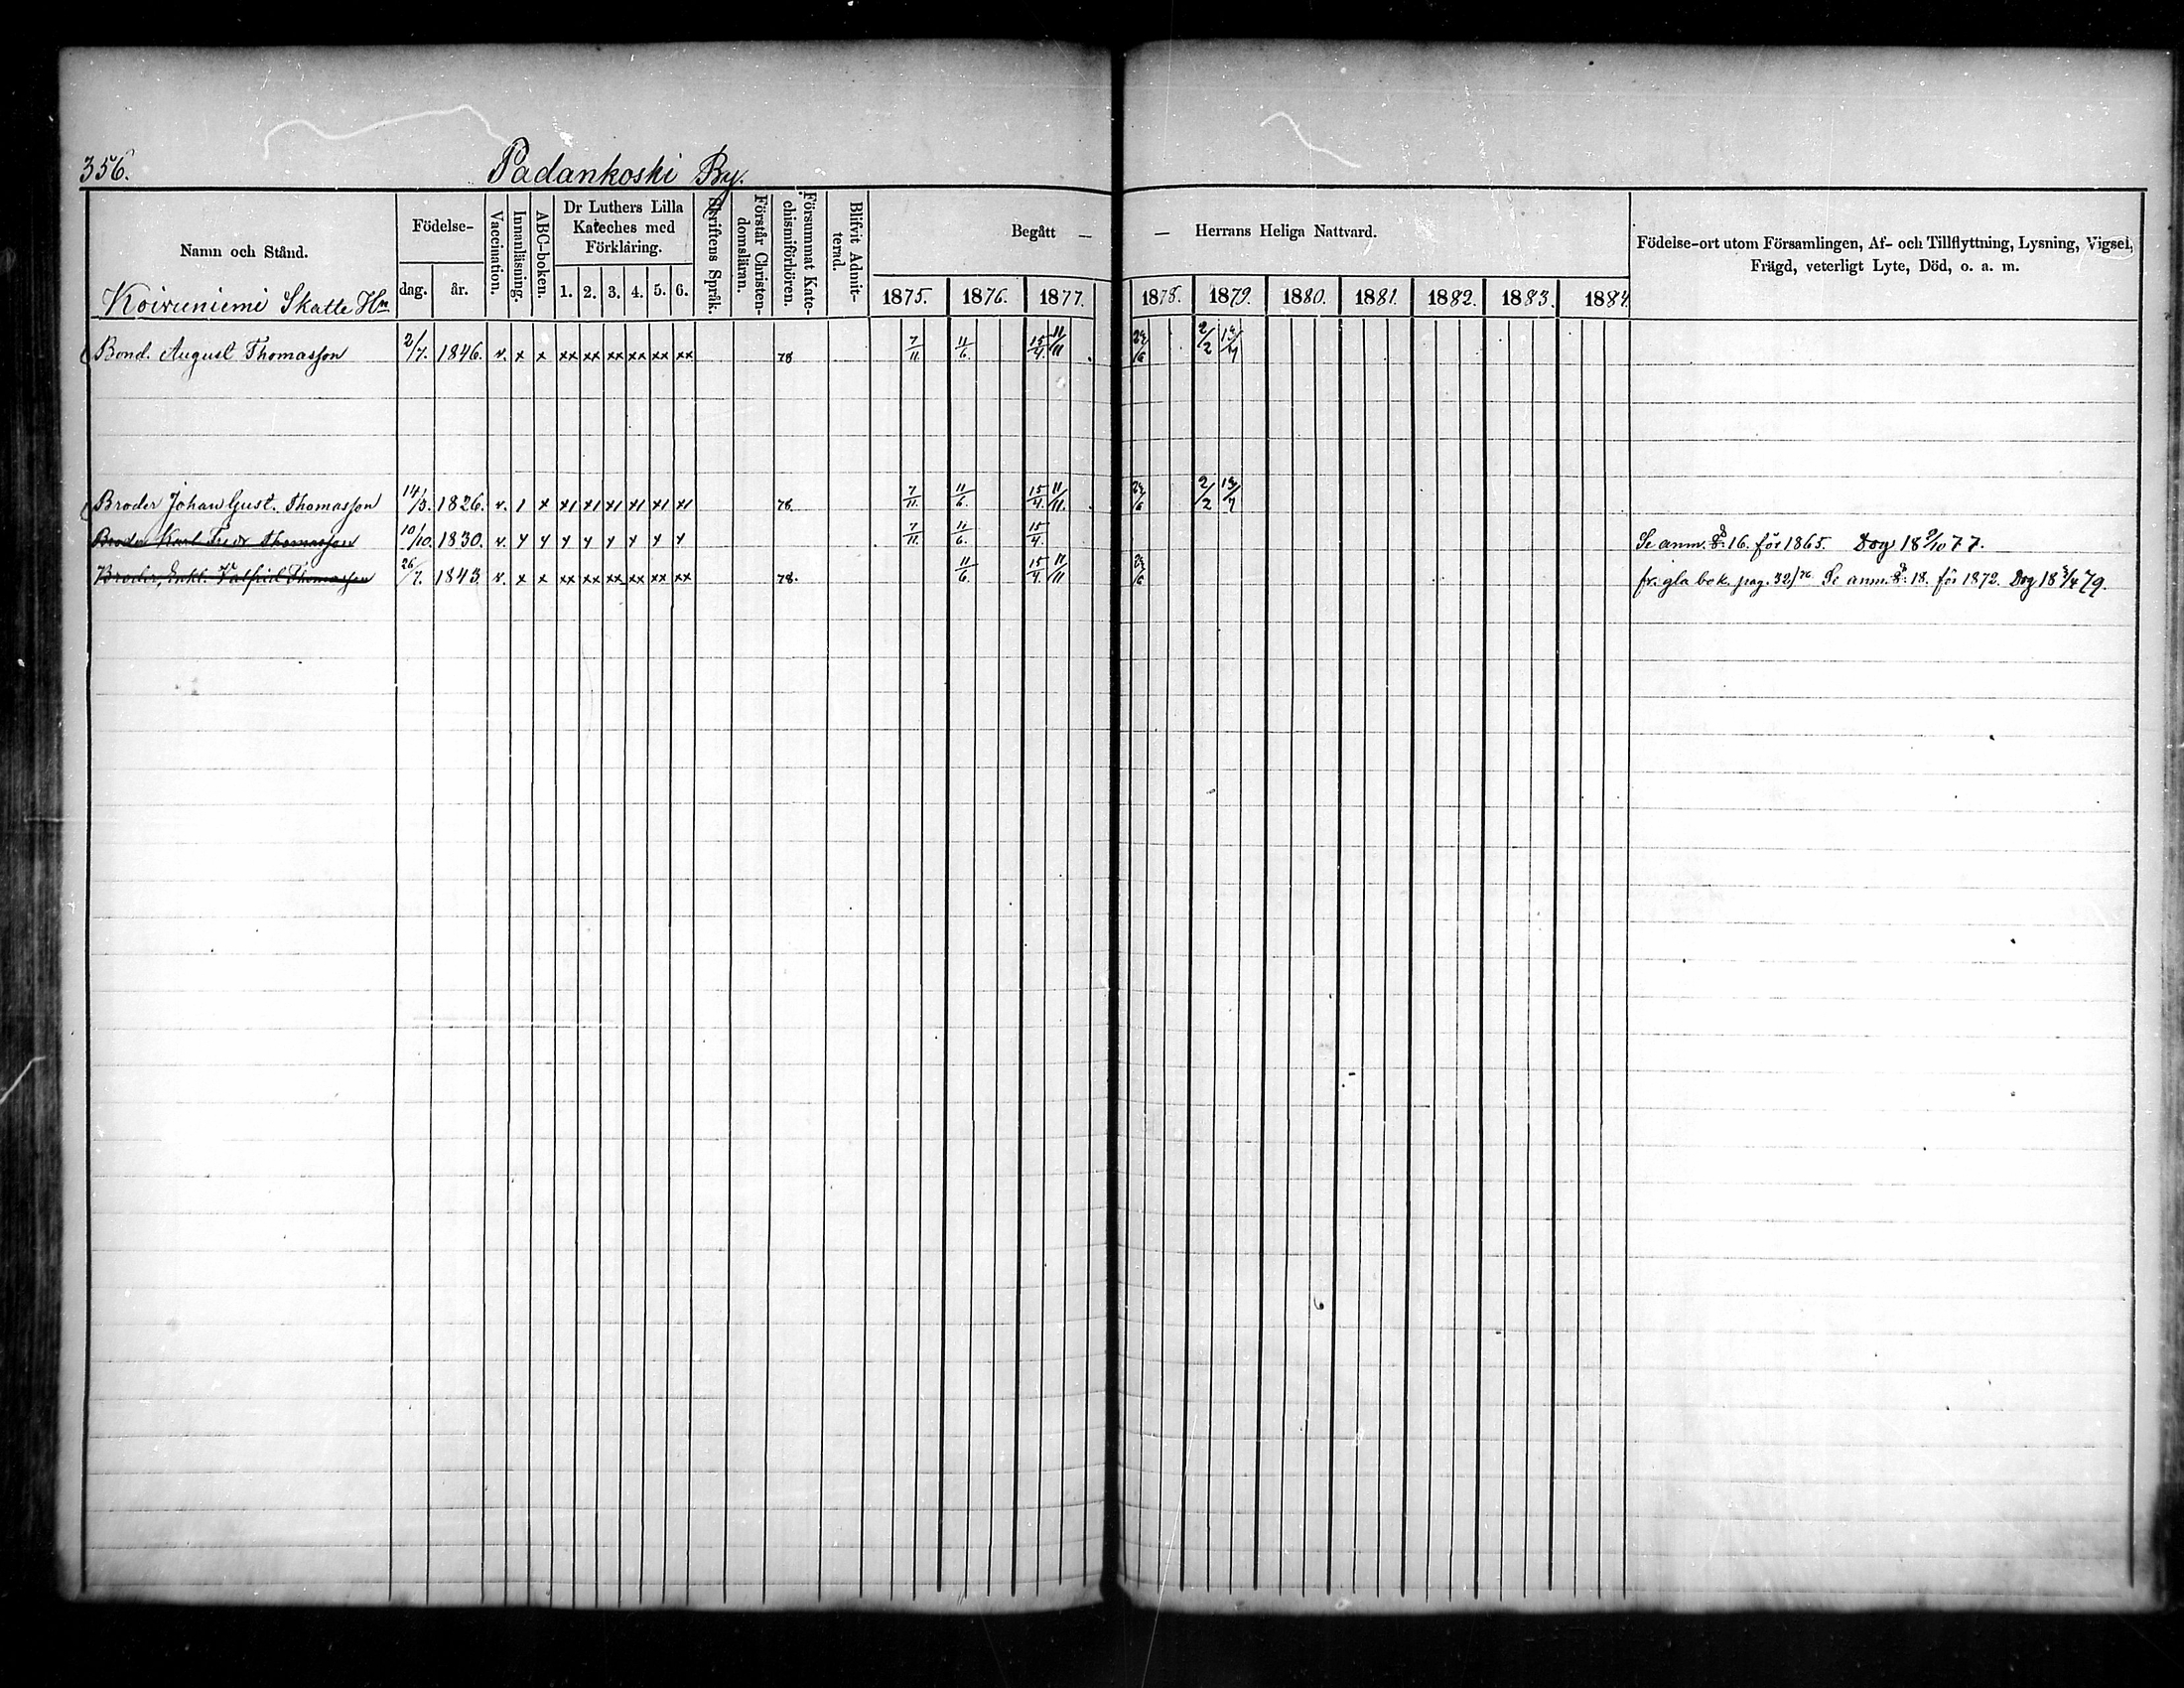 356.
Padankoski By.
Namn och Stånd.
Födelse-
dag. år.
Vaccination.
Innanläsning.
ABC-boken.
Dr Luthers Lilla
Kateches med
Förklaring.
1. 2. 3. 4. 5. 6.
Skriftens Språk.
Förstår Christen-
domsläran.
Försummat Kate-
chismiförhören.
Blifvit Admit-
terad.
Begått —
— Herrans Heliga Nattvard.
1875. 1876. 1877. 1878. 1879. 1880. 1881. 1882. 1883. 1884.
Födelse-ort utom Församlingen, Af- och Tillflyttning, Lysning, Vigsel,
Frägd, veterligt Lyte, Död, o. a. m.
Koiruniemi Skatte Hn
Bond. August Thomasson 2/7. 1846. v. x x xx xx xx xx xx xx 78 7/11 11/6. 15/4. 11/11 2/2
Broder Johan Gust. Thomasson 14/3. 1826. v. 1 x x1 x1 x1 x1 x1 x1 78. 7/11. 11/6. 15/4. 11/11. 2/2
Broder Karl Fredr Thomasson 10/10. 1830. v. 7/11. 11/6. 15/4. Se anm. 16. för 1865. Dog 18 9/10 77.
Broder, Enkl. Valfrid Thomasson 26/7. 1843. v. x x xx xx xx xx xx xx 78. 11/6. 15/4. 11/11 fr. gla bok. pag. 32/76 Se anm. 18. för 1872. Dog 18 /4 79.